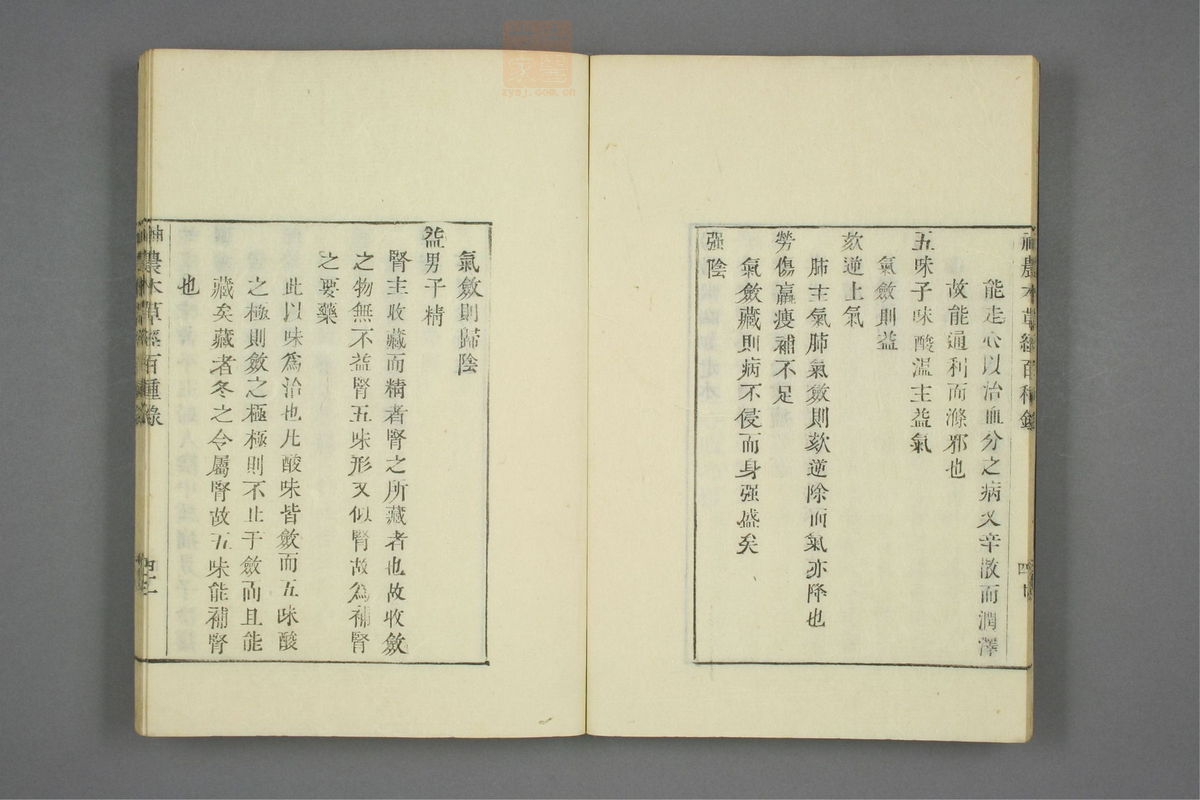 神農本草經百種錄
能走心以治血分之病又辛散而潤澤
故能通利而滌邪也
五味子味酸溫主益氣
氣斂則益
欬逆上氣
肺主氣肺氣斂則欬逆除而氣亦降也
勞傷羸瘦補不足
氣斂藏則病不侵而身强盛矣
强陰
氣斂則歸陰
益男子精
腎主收藏而精者腎之所藏者也故收斂
之物無不益腎五味形又似腎故為補腎
之要藥
此以味爲治也凡酸味皆斂而五味酸
之極則斂之極極則不止于斂而且能
藏矣藏者冬之令屬腎故五味能補腎
也
神農本草經百種錄
zysj.com.cn